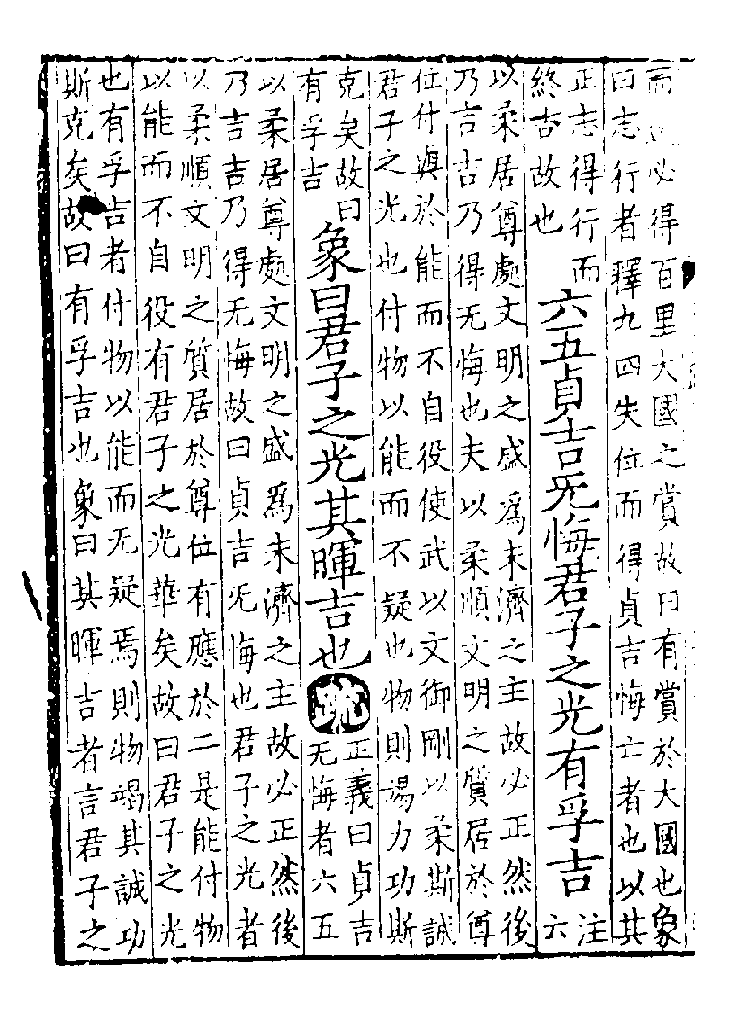 而必得百里大國之賞故曰有賞於大國也象
曰志行者釋九四失位而得貞吉悔亡者也以其
正志得行而
終吉故也
六五貞吉无悔君子之光有孚吉
注
六
以柔居尊處文明之盛爲未濟之主故必正然後
乃言吉乃得无悔也夫以柔順文明之質居於尊
位付與於能而不自役使武以文御剛以柔斯誠
君子之光也付物以能而不疑也物則竭力功斯
克矣故曰
有孚吉
象曰君子之光其暉吉也
疏
正義曰貞吉
无悔者六五
以柔居尊處文明之盛爲未濟之主故必正然後
乃吉吉乃得无悔故曰貞吉无悔也君子之光者
以柔順文明之質居於尊位有應於二是能付物
以能而不自役有君子之光華矣故曰君子之光
也有孚吉者付物以能而无疑焉則物竭其誠功
斯克矣故曰有孚吉也象曰其暉吉者言君子之